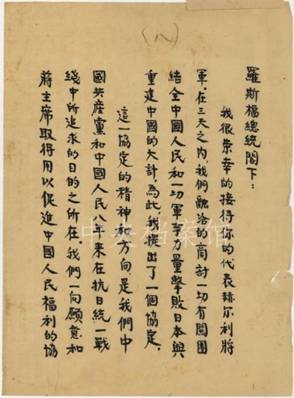 (八)
羅斯福總統閣下：
我很榮幸的接待你的代表赫尔利將
軍.在三天之内,我們融洽的商討一切有関團
結全中國人民和一切軍事力量擊敗日本與
重建中國的大計.為此,我提出了一個協定.
這一協定的精神和方向,是我們中
國共産黨和中國人民八年来在抗日統一戰
綫中所追求的目的之所在.我們一向願意和
蔣主席取得用以促進中國人民福利的協